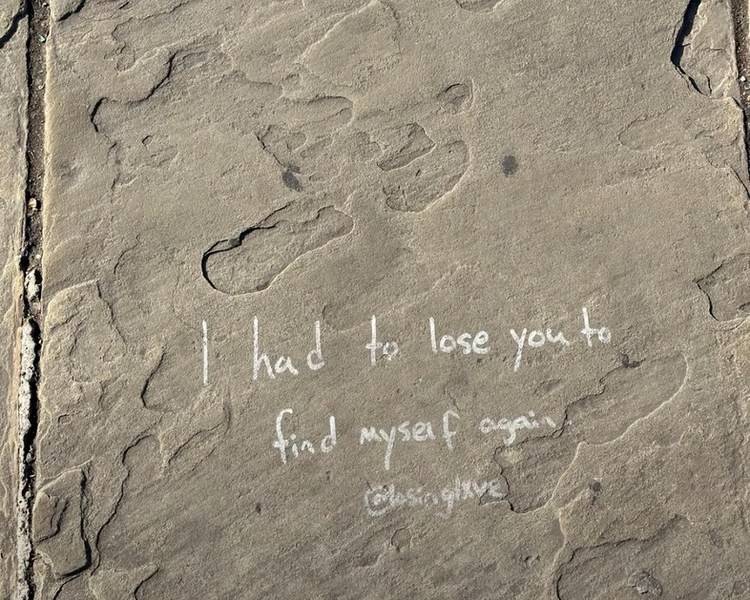 I had to lose you to
find myself again
@losinglxve